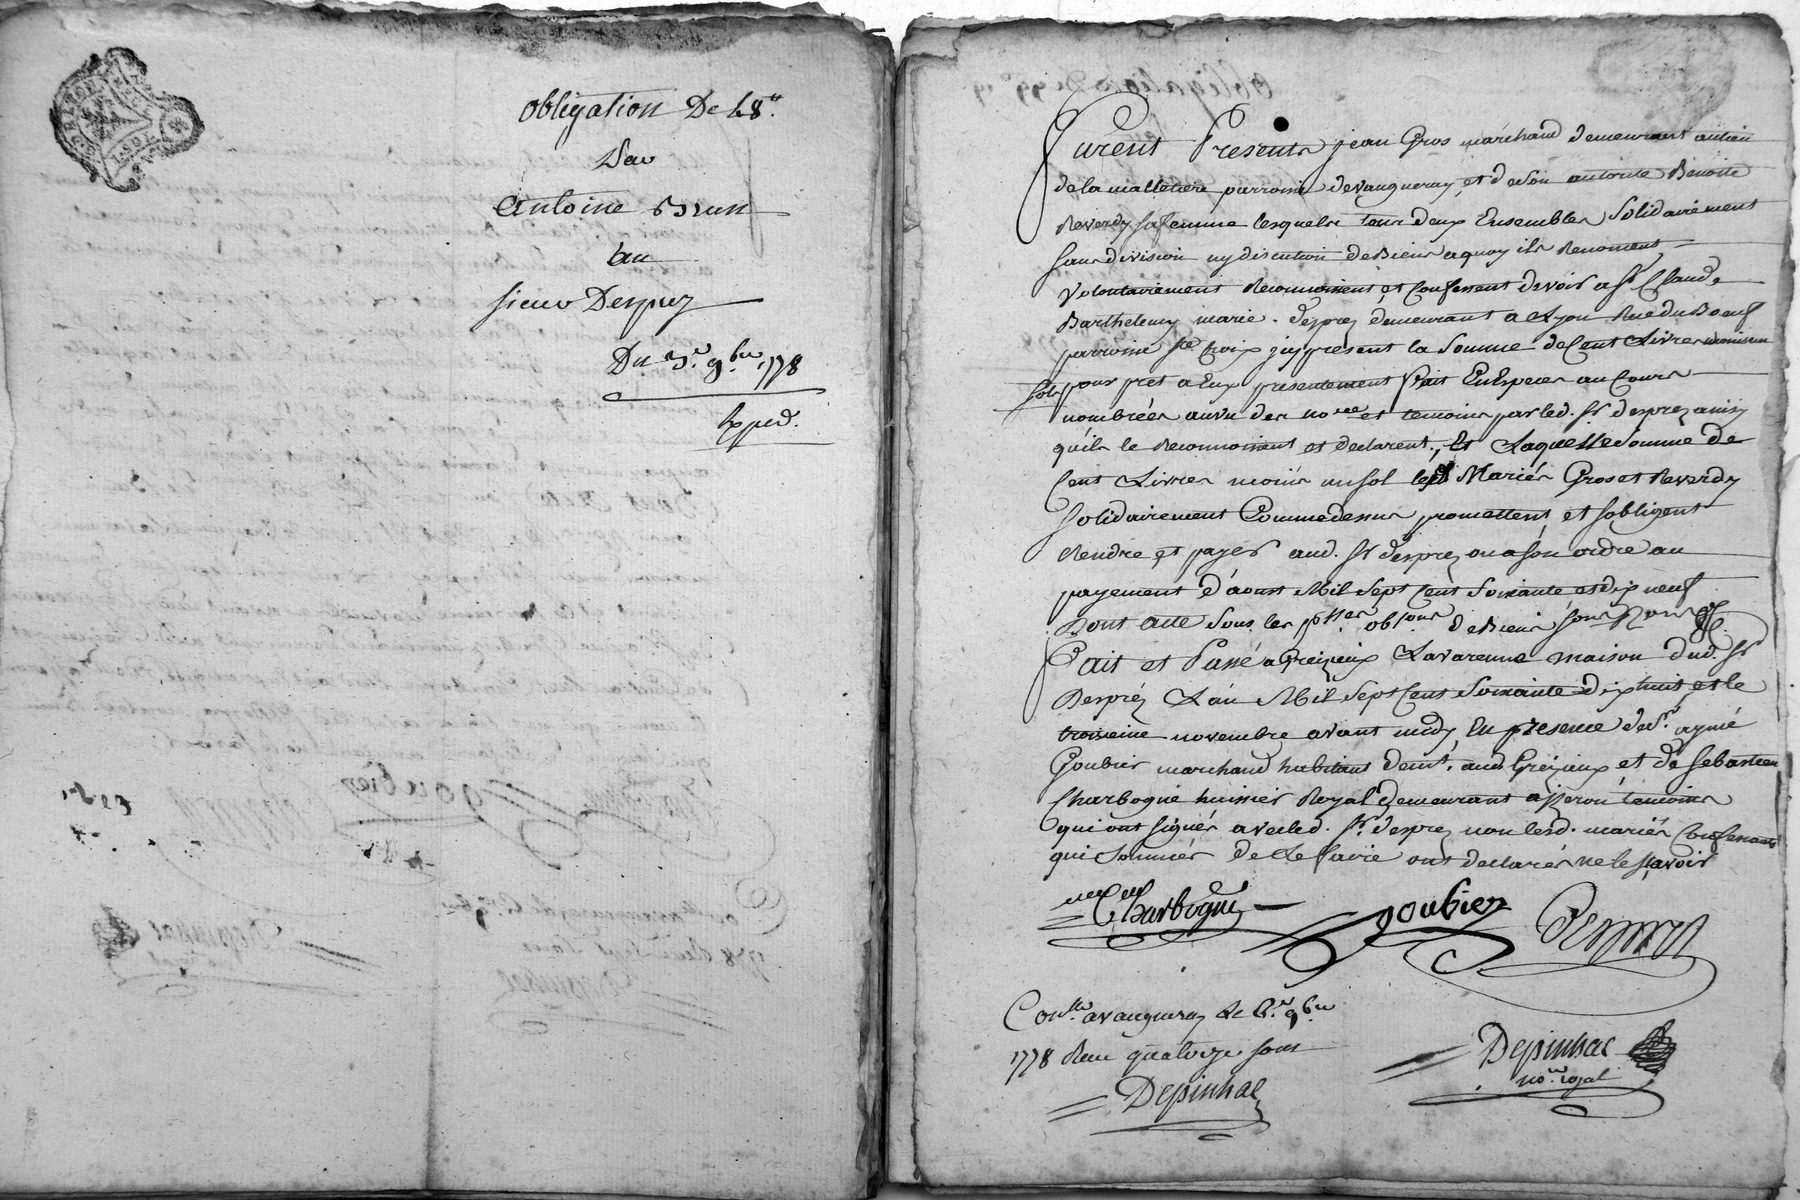 obligation De 48.tt
Par
Antoine Brun
au
sieur Desprez
Du 3.e 9.bre 1778
Exped.
Furent Presents jean Gros marchand demeurant au lieu
de la malletiere parroisse de vaugneray, et de son autorite Benoitte
Reverdy sa femme lesquels tous deux Ensembles Solidairement
sans division ny discution de Biens a quoy ils Renoncent
Volontairement Reconnoissent et Confessent devoir a Sr Claude
Barthelemy marie desprez demeurant a Lyon Rue du Boeuf
parroisse Ste Croix icy present la Somme de Cent Livres moins un
sols pour pret a Eux presentement fait En Especes au Cours
nombrées au vu des nore et temoins par led. Sr desprez ainsy
qu'ils le Reconnoissent et declarent, Et Laquelle Somme de
Cent Livres moins un sol lesd Mariés Gros et Reverdy
Solidairement Comme dessus promettent et s'obligent
Rendre et payer aud. Sr desprez ou a son ordre au
payement d'aoust Mil Sept Cent Soixante et dix neuf
Dont acte Sous les obons de Biens
Fait et Passé a Grezieux Lavarenne maison dud. Sr
Desprez L'an Mil Sept Cent Soixante dix huit et le
troisieme novembre avant midy En presence de Sr. aymé
Goubier marchand habitant demt. aud Grezieux et de Sebastien
Charbogne huissier Royal demeurant a jzeron temoins
qui ont signés avec led. Sr. desprez non lesd. mariés Confessants
qui Sommés de Le faire ont declarés ne le sçavoir
Charbogne goubier Desprez
Conlle a vaugneray Le 6.e 9bre
1778 Reçu quatorze sous
Depinhac
Depinhac
no.re royal